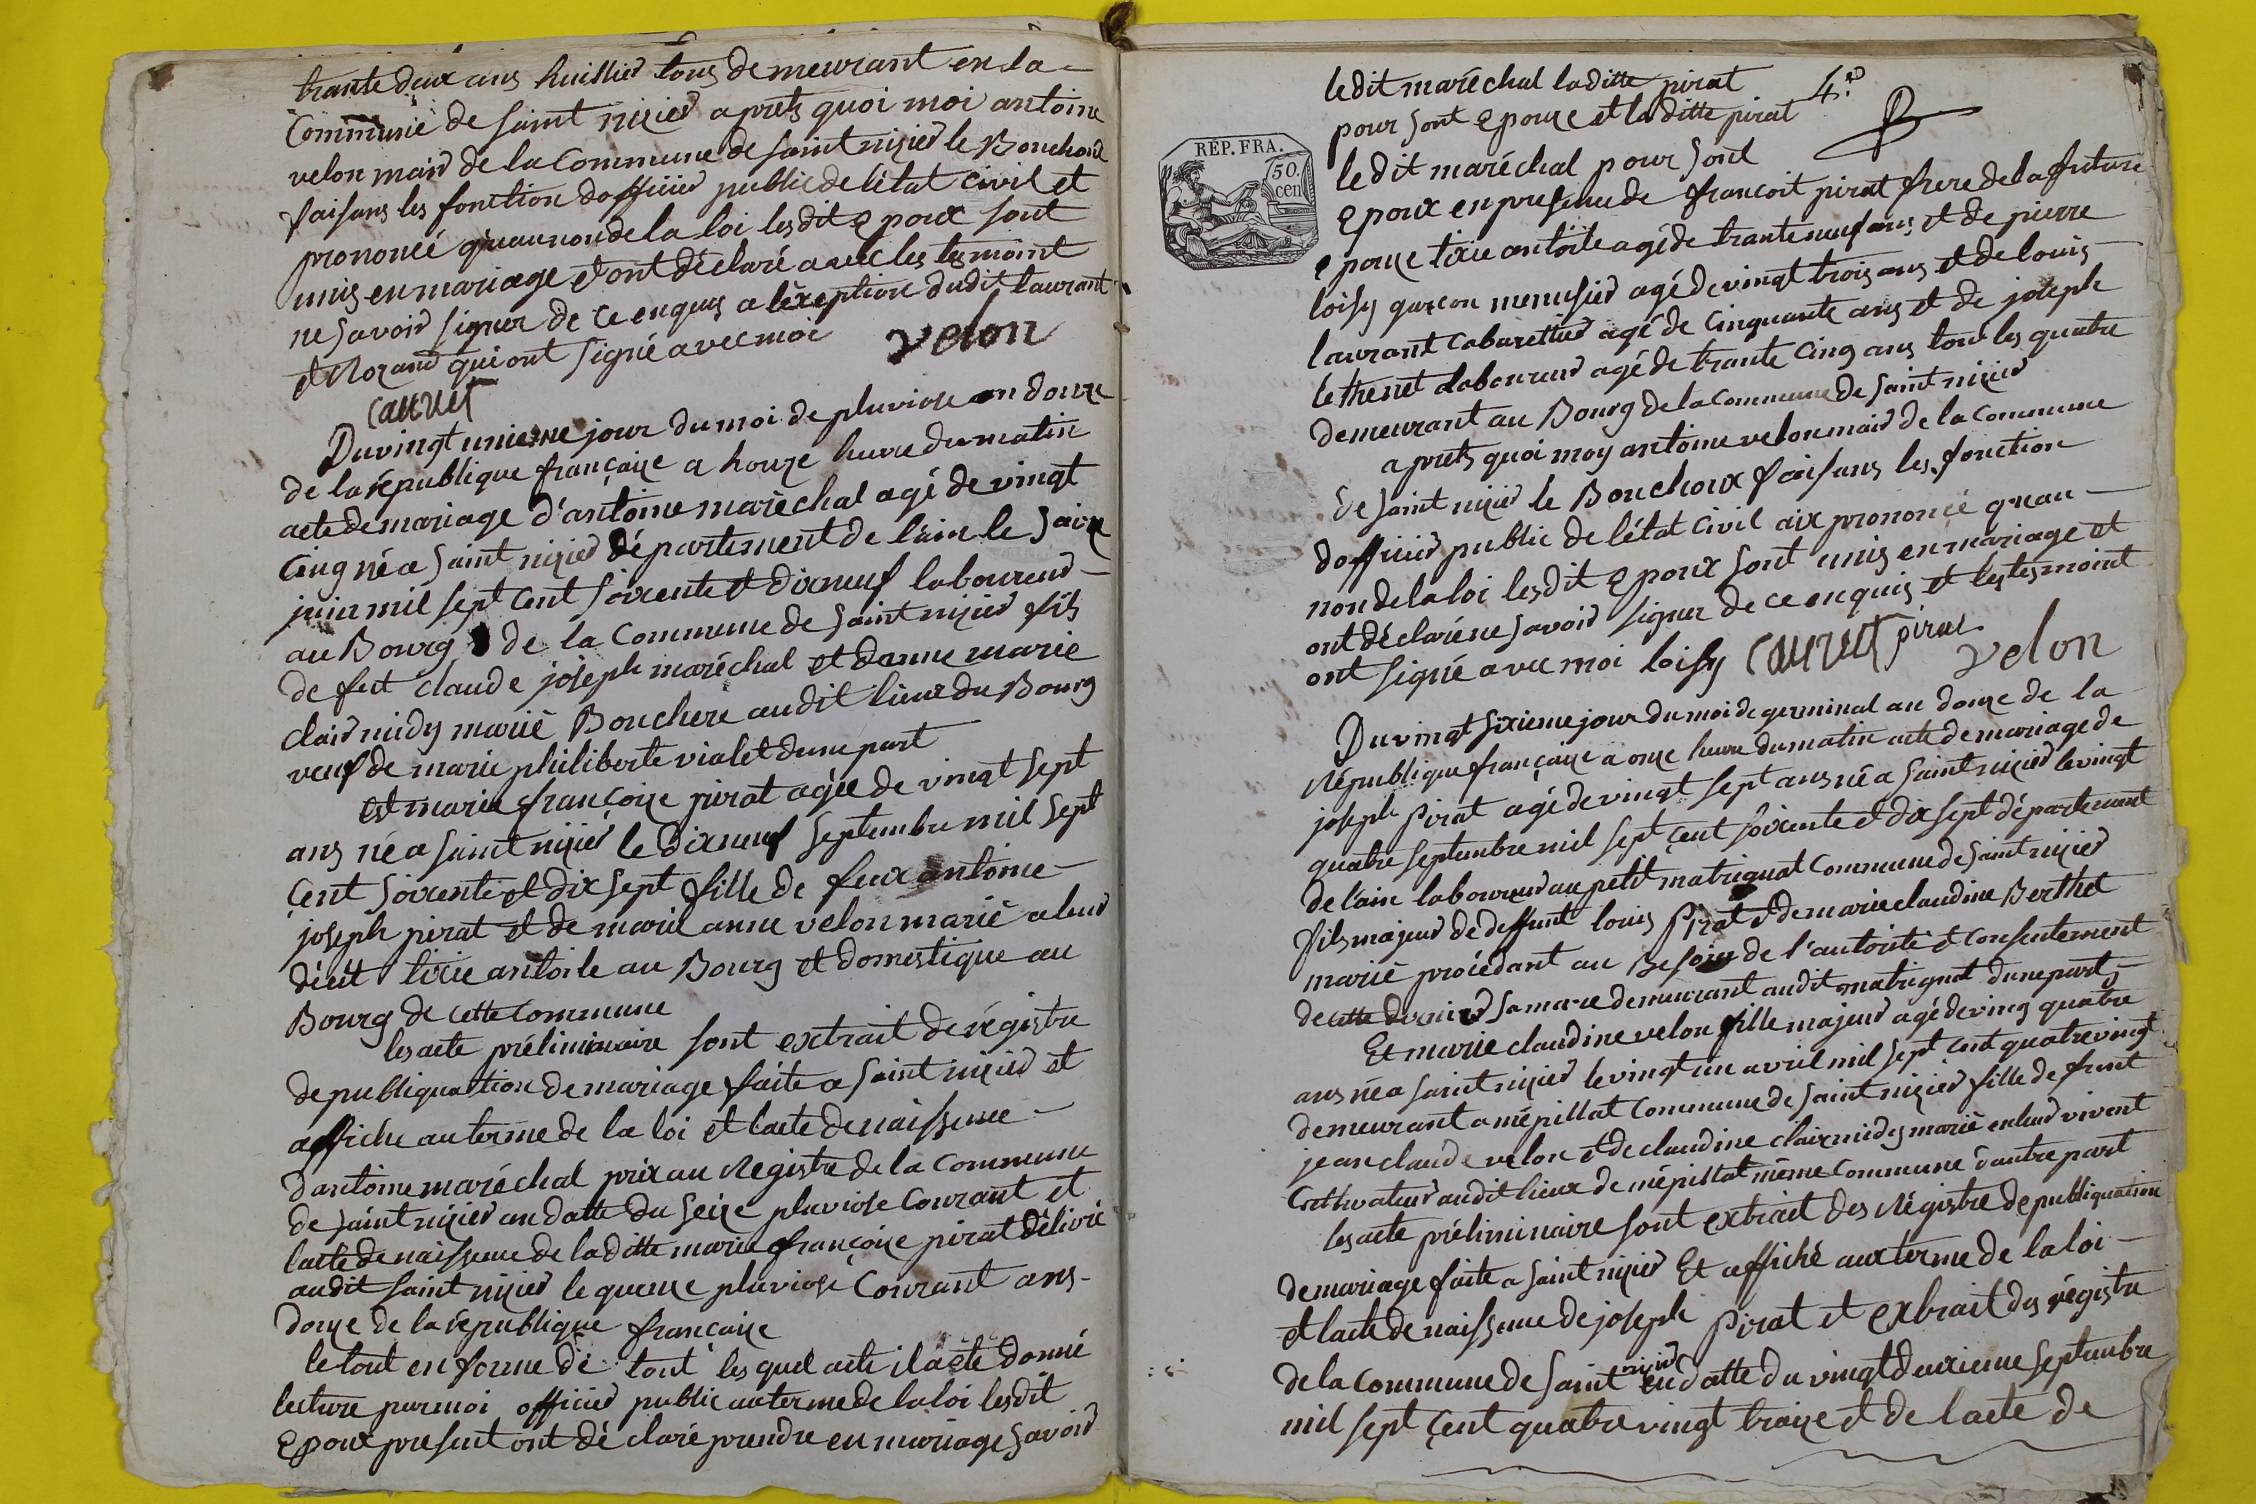 trante deux ans huillier tous demeurant en la
Commune de saint nizier aprets quoi moi antoine
velon maire de la Commune de saint nizier le Bouchoux
faisans les fonction d officier public de l'état civil et
prononcé qu'au non de la loi les dit epoux sont
unis en mariage et ont déclaré avec les tesmoint
ne savoir signer de ce enquis a l'exeption dudit laurant
et Morand qui ont signé avec moi velon
laurent
Du vingt unieme jour du moi de pluviose an douze
de la république françaize a honze heure du matin
acte de mariage d'antoine maréchal agé de vingt
cinq né a saint nizier département de l'ain le saize
juin mil sept cent soixente et dixneuf laboureur
au Bourg de la Commune de saint nizier fils
de feut claude joseph maréchal et danne marie
clair midy marié Bouchere audit lieux du Bourg
veuf de marie philiberte vialet dune part
et marie françoize pirat agée de vingt sept
ans né a saint nizier le dixneuf septembre mil sept
çent soixente et dix sept fille de feux antoine
joseph pirat et de marie anne velon marié a leur
déüt tixie antoile au Bourg et domestique au
Bourg de cette commune
les acte préliminaire sont extrait de régistre
de publiquation de mariage faite a saint nizier et
affiche au terme de la loi et l'acte de naissence
d'antoine maréchal prix au Registre de la Commune
de saint nizier en datte du seize pluviose Courant et
l'acte de naissence de la ditte marie françoize pirat délivré
audit saint nizier le quenze pluviose Courant ans
douze de la république françaize
le tout en forme de tout les quel acte il a été donné
lecture par moi officier public au terme de la loi lesdit
Epoux present ont déclaré prendre en mariage savoir
le dit maréchal la ditte pirat 4.e
pour sont epouze et la ditte pirat
le dit maréchal pour sont
epoux en presence de françoit pirat frere de la future
epouze tixie antoile agé de trante neuf ans et de pierre
loisy garçon menusier agé de vingt trois ans et de louis
laurant cabarettier agé de Cinquante ans et de joseph
lethenet laboureur agé de trante Cinq ans tout les quatre
demeurant au Bourg de la Commune de saint nizier
aprets quoi moy antoine velon maire de la Commune
de saint nizier le Bouchoux faisans les fonction
d officier public de l'état Civil aix prononcé qu'au
non de la loi les dit epoux sont unis en mariage et
ont déclaré ne savoir signer de ce enquis et les tesmoint
ont signé avec moi loisy laurent pirat
velon
RÉP. FRA.
50.
cen
Du vingt sixieme jour du moi de germinal an douze de la
République françaize a onze heure du matin acte de mariage de
joseph Pirat agé de vingt sept ans né a saint nizier le vingt
quatre septembre mil sept çent soixente et dix sept département
de l'ain laboureur au petit matrignat Commune de saint nizier
fils majeur de deffunt louis Pirat et de marie claudine Berthet
marié procédant au Besoin de l'autorité et consentement
de cette dernier sa mare demeurant audit matrignat dune part
Et marie claudine velon fille majeur agé de ving quatre
ans né a saint nizier le vingt un avril mil sept cent quatre vingt
demeurant a mépillat Commune de saint nizier fille de feut
jean claude velon et de claudine clairmidy marié en leur vivent
Cultivateur audit lieux de mépillat même Commune dautre part
les acte préliminaire sont extrait des Régistre de publiquation
de mariage faite a saint nizier Et affiché aux terme de la loi
et l'acte de naissence de joseph Pirat et extrait des régistre
de la Commune de saint nizier en datte du vingt deuxieme septembre
mil sept çent quatre vingt traize et de l'acte de